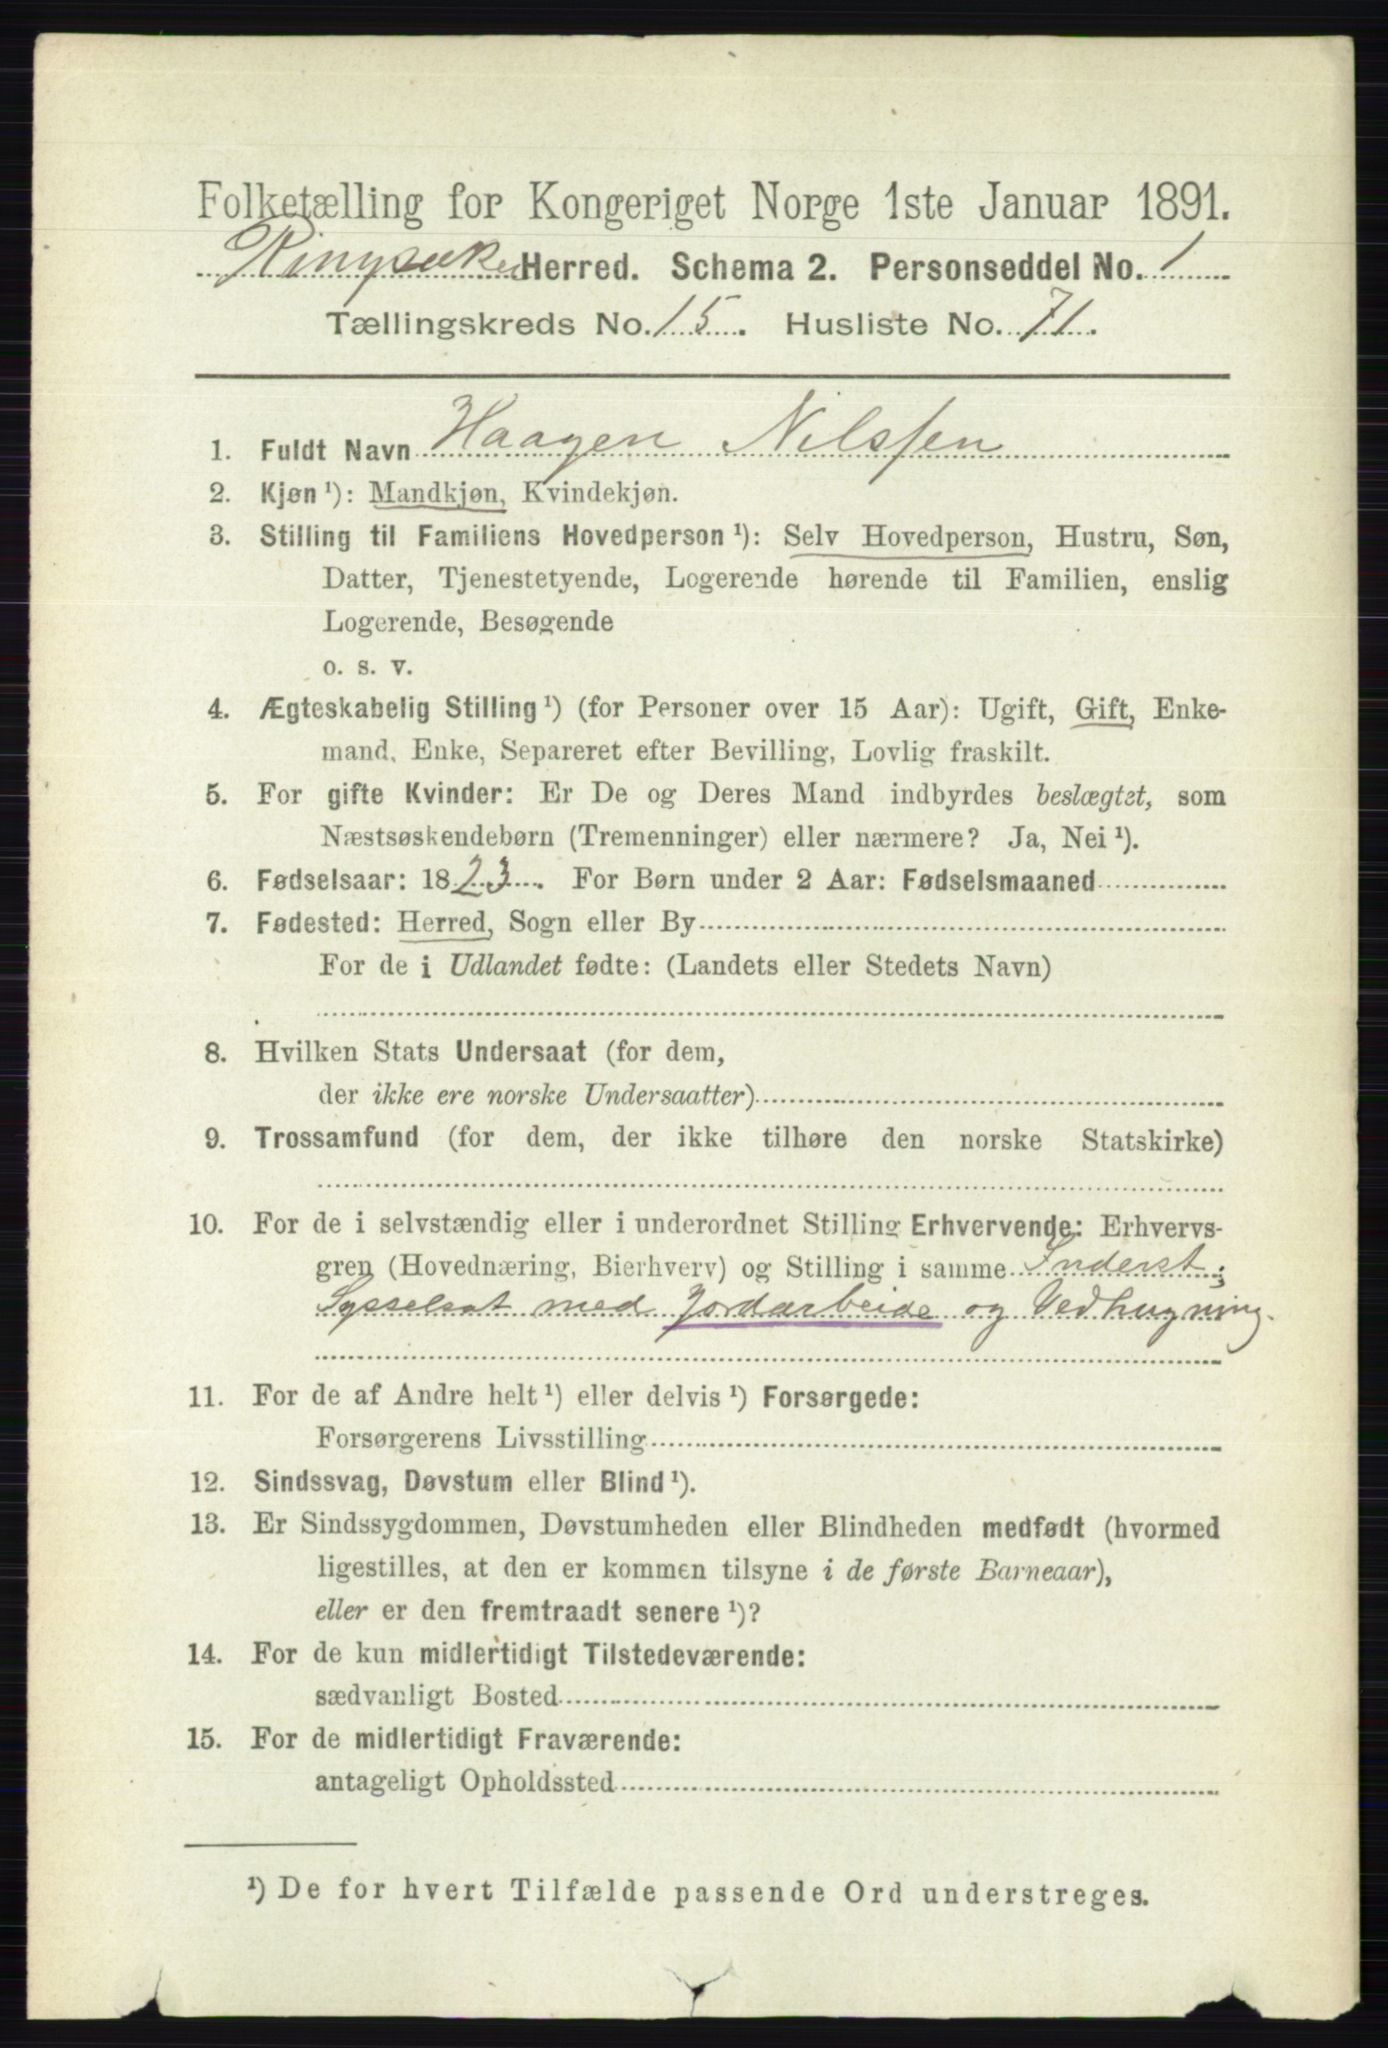 Folketælling for Kongeriget Norge 1ste Januar 1891.
Ringsaker Herred. Schema 2. Personseddel No. 1
Tællingskreds No. 15. Husliste No. 71.
1. Fuldt Navn Haagen Nilssen
2. Kjøn ¹): Mandkjøn, Kvindekjøn.
3. Stilling til Familiens Hovedperson ¹): Selv Hovedperson, Hustru, Søn,
Datter, Tjenestetyende, Logerende hørende til Familien, enslig
Logerende, Besøgende
o. s. v.
4. Ægteskabelig Stilling ¹) (for Personer over 15 Aar): Ugift, Gift, Enke-
mand, Enke, Separeret efter Bevilling, Lovlig fraskilt.
5. For gifte Kvinder: Er De og Deres Mand indbyrdes beslægtet, som
Næstsøskendebørn (Tremenninger) eller nærmere? Ja, Nei ¹).
6. Fødselsaar: 1823. For Børn under 2 Aar: Fødselsmaaned
7. Fødested: Herred, Sogn eller By
For de i Udlandet fødte: (Landets eller Stedets Navn)
8. Hvilken Stats Undersaat (for dem,
der ikke ere norske Undersaatter)
9. Trossamfund (for dem, der ikke tilhøre den norske Statskirke)
10. For de i selvstændig eller i underordnet Stilling Erhvervende: Erhvervs-
gren (Hovednæring, Bierhverv) og Stilling i samme Inderst;
Sysselsat med Jordarbeide og Vedhugning.
11. For de af Andre helt ¹) eller delvis ¹) Forsørgede:
Forsørgerens Livsstilling
12. Sindssvag, Døvstum eller Blind ¹).
13. Er Sindssygdommen, Døvstumheden eller Blindheden medfødt (hvormed
ligestilles, at den er kommen tilsyne i de første Barneaar),
eller er den fremtraadt senere ¹)?
14. For de kun midlertidigt Tilstedeværende:
sædvanligt Bosted
15. For de midlertidigt Fraværende:
antageligt Opholdssted
¹) De for hvert Tilfælde passende Ord understreges.